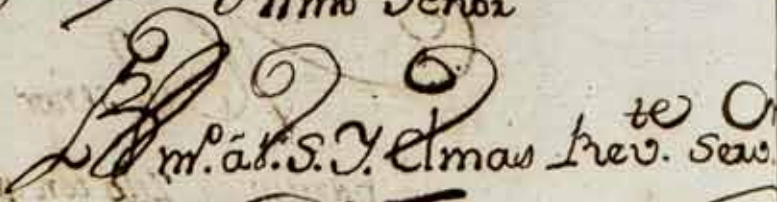 Illmo Señor
B. l. m.º á V. S. Y. el mas Rev.te Serv.